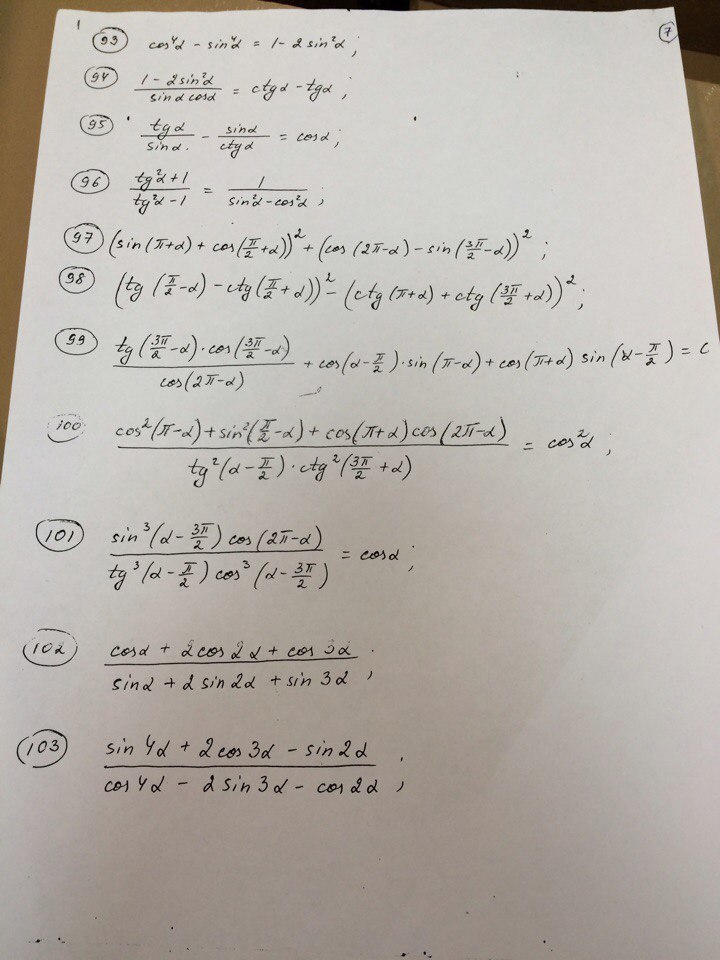 1 7
93 cos⁴α - sin⁴α = 1 - 2 sin²α;
94 (1 - 2sin²α)/(sinα cosα) = ctgα - tgα;
95 tgα/sinα - sinα/ctgα = cosα;
96 (tg²α+1)/(tg²α-1) = 1/(sin²α-cos²α);
97 (sin(π+α) + cos(π/2+α))² + (cos(2π-α) - sin(3π/2-α))²;
98 (tg(π/2-α) - ctg(π/2+α))² - (ctg(π+α) + ctg(3π/2+α))²;
99 (tg(3π/2-α)·cos(3π/2-α))/(cos(2π-α)) + cos(α-π/2)·sin(π-α) + cos(π+α) sin(α-π/2) = c
100 (cos²(π-α) + sin²(π/2-α) + cos(π+α) cos(2π-α))/(tg²(α-π/2)·ctg²(3π/2+α)) = cos²α;
101 (sin³(α-3π/2) cos(2π-α))/(tg³(α-π/2) cos³(α-3π/2)) = cosα;
102 (cosα + 2cos2α + cos3α)/(sinα + 2sin2α + sin3α);
103 (sin4α + 2cos3α - sin2α)/(cos4α - 2sin3α - cos2α);